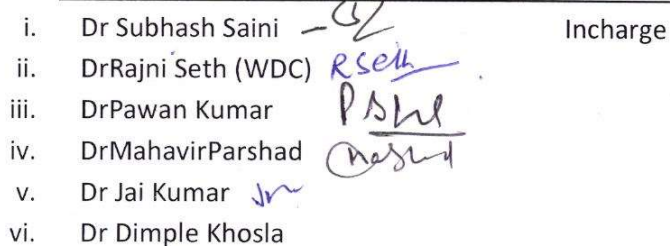 i. Dr Subhash Saini Incharge
ii. DrRajni Seth (WDC) RSeth
iii. DrPawan Kumar
iv. DrMahavirParshad
v. Dr Jai Kumar
vi. Dr Dimple Khosla